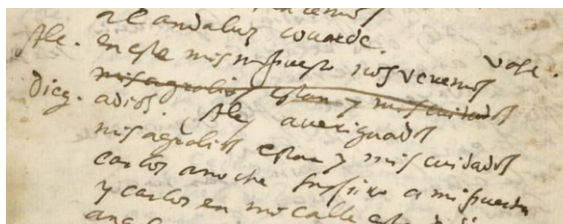 al andaluz couarde.
Ale. en este mismo puesto nos veremos vase.
mis agrabios estan y mis cuidados
Dieg. adios. Ale averiguados
mis agrabios estan y mis cuidados
carlos anoche a mi puerta
y carlos en mi calle